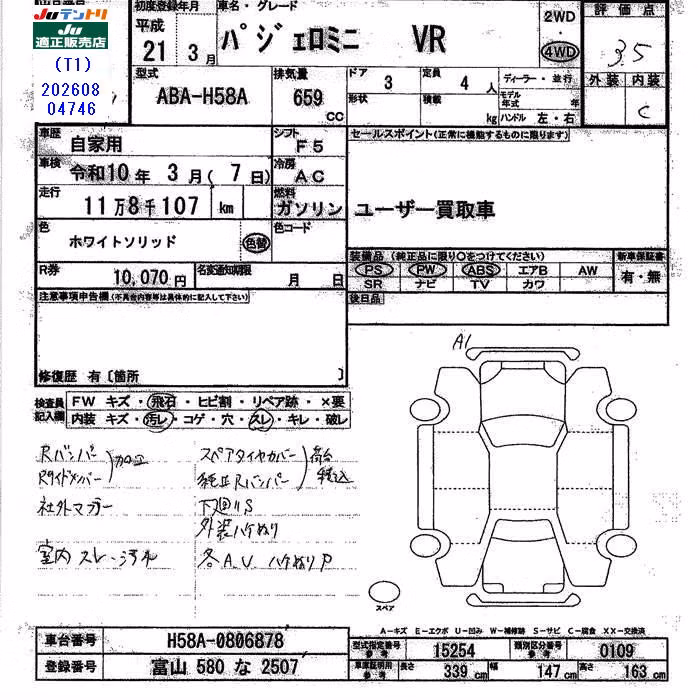 Juテントリ
Ju
適正販売店
(T1)
202608
04746
初度登録年月
平成
21 3月
車名・グレード
パジェロミニ VR
2WD
・
4WD
評価点
3.5
外装 内装
C
型式
ABA-H58A
排気量
659
CC
ドア
3
定員
4人
形状
積載
kg
ディーラー・並行
モデル年式 年
ハンドル 左・右
車歴
自家用
シフト
F5
セールスポイント(正常に機能するものに限ります)
車検
令和10年 3月( 7日)
冷房
AC
走行
11万8千107 km
燃料
ガソリン
ユーザー買取車
色
ホワイトソリッド
色替
色コード
R券
10,070円
名変通知期限
月 日
装備品(純正品に限り○をつけてください)
新車保証書
PS PW ABS エアB AW
有・無
SR ナビ TV カワ
後日品
注意事項申告欄(不具合内容等は具体的に記入して下さい)
修復歴 有〔箇所 〕
検査員記入欄
FW キズ・飛石・ヒビ割・リペア跡・×要
内装 キズ・汚レ・コゲ・穴・スレ・キレ・破レ
Rバンパー
Rサイドメンバー
加正
スペアタイヤカバー
純正Rバンパー
荷台積込
社外マフラー
下廻りS
外装ハケぬり
室内スレ・汚れ
各A.U ハケぬりP
A1
スペア
A-キズ E-エクボ U-凹み W-補修跡 S-サビ C-腐食 XX-交換済
車台番号
H58A-0806878
登録番号
富山 580 な 2507
型式指定番号
参考
15254
類別区分番号
参考
0109
車庫証明用
参考
長さ
339cm
幅
147cm
高さ
163cm